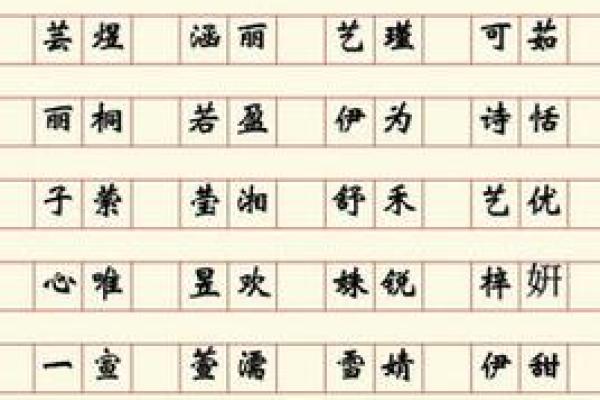 芸煜 涵丽 艺瑾 可茹
丽桐 若盈 伊为 诗恬
子萦 莹湘 舒禾 艺优
心唯 昱欢 姝锐 梓妍
一宣 萱濡 雪婧 伊甜